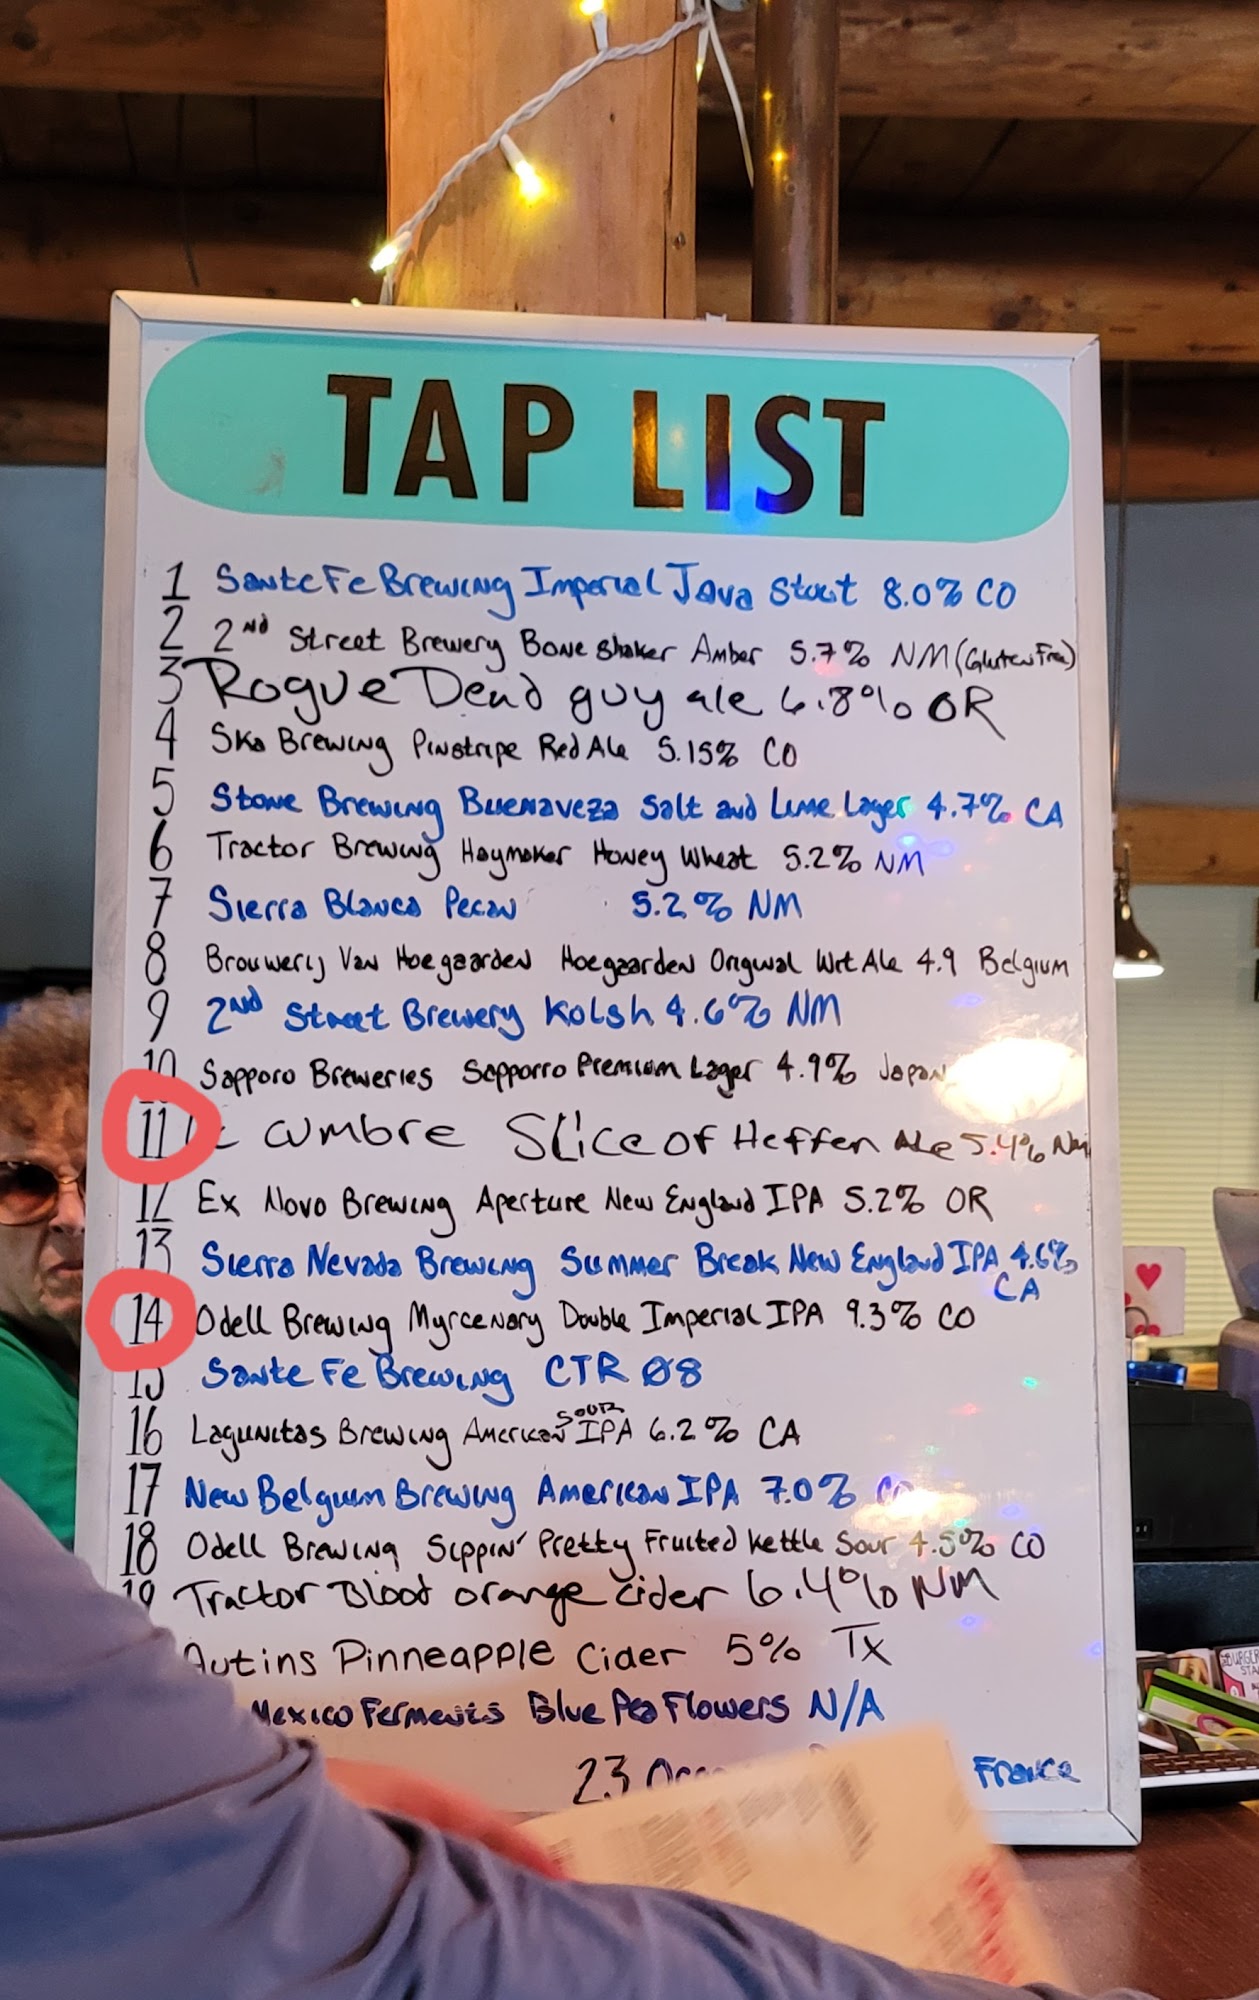 TAP LIST
1 Sante Fe Brewing Imperial Java Stout 8.0% CO
2 2nd Street Brewery Bone Shaker Amber 5.7% NM (Gluten Free)
3 Rogue Dead guy ale 6.8% OR
4 Ska Brewing Pinstripe Red Ale 5.15% CO
5 Stone Brewing Buenaveza Salt and Lime Lager 4.7% CA
6 Tractor Brewing Haymaker Honey Wheat 5.2% NM
7 Sierra Blanca Pecan 5.2% NM
8 Brouwerij Van Hoegaarden Hoegaarden Original Wit Ale 4.9 Belgium
9 2nd Street Brewery Kolsh 4.6% NM
10 Sapporo Breweries Sapporro Premium Lager 4.9% Japan
11 Cumbre Slice of Heffen Ale 5.4% NM
12 Ex Novo Brewing Aperture New England IPA 5.2% OR
13 Sierra Nevada Brewing Summer Break New England IPA 4.6%
CA
14 Odell Brewing Myrcenary Double Imperial IPA 9.3% CO
15 Sante Fe Brewing CTR Ø8
16 Lagunitas Brewing American SOUR IPA 6.2% CA
17 New Belgium Brewing American IPA 7.0% CO
18 Odell Brewing Sippin' Pretty Fruited Kettle Sour 4.5% CO
19 Tractor Blood orange cider 6.4% NM
Autins Pinneapple Cider 5% Tx
Mexico Ferments Blue Pea Flowers N/A
23 France